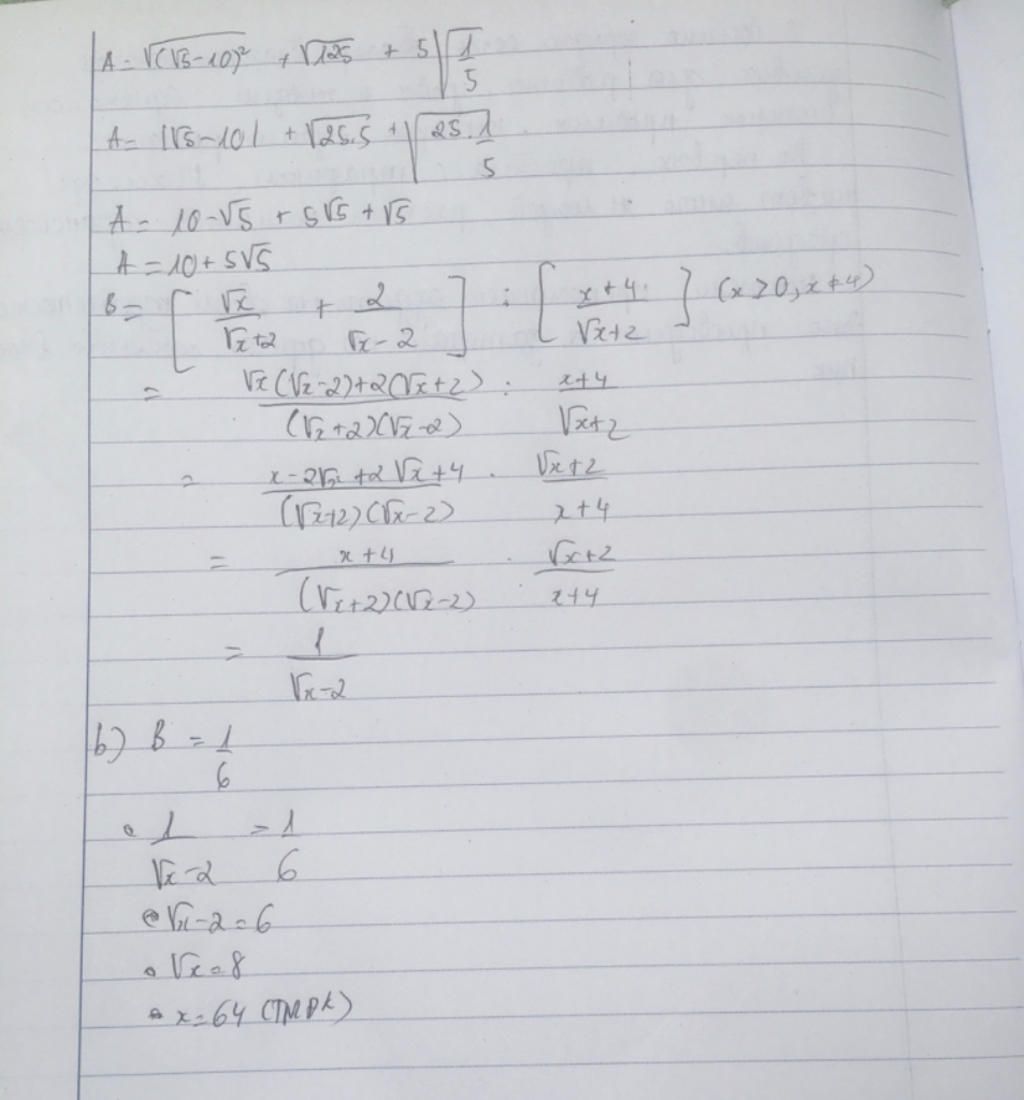 A = √(√5-10)² + √125 + 5√1/5
A = |√5-10| + √25.5 + √25.1/5
A = 10-√5 + 5√5 + √5
A = 10 + 5√5
B = [√x/√x+2 + 2/√x-2] : [x+4/√x+2] (x≥0, x≠4)
= √x(√x-2)+2(√x+2)/(√x+2)(√x-2) : x+4/√x+2
= x-2√x+2√x+4/(√x+2)(√x-2) . √x+2/x+4
= x+4/(√x+2)(√x-2) . √x+2/x+4
= 1/√x-2
b) B = 1/6
1/√x-2 = 1/6
√x-2=6
√x=8
x=64 (TMĐK)